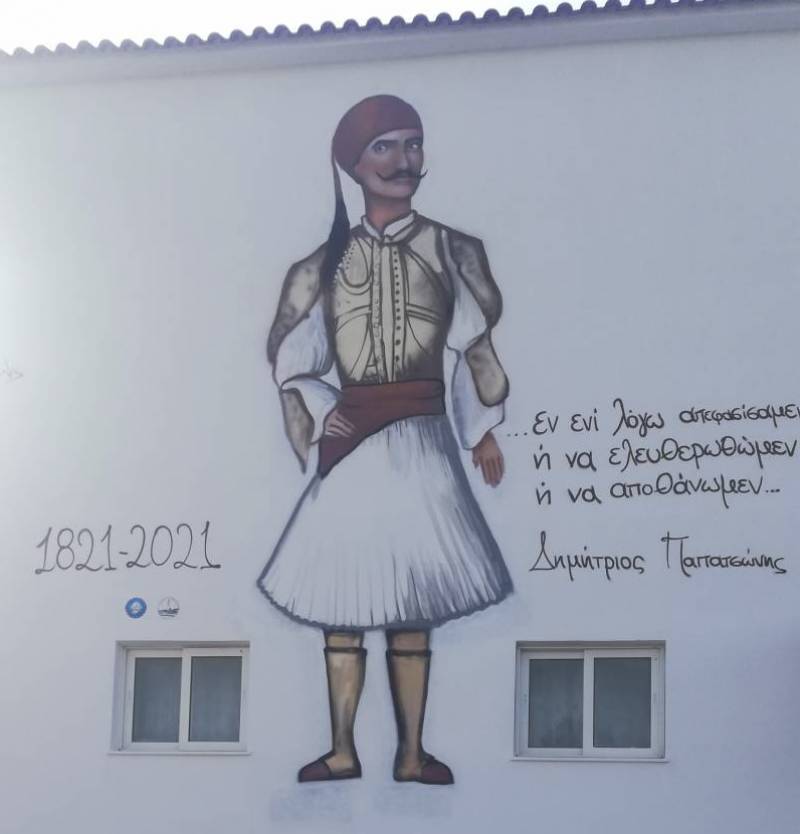 ...εν ενί λόγω απεφασίσαμεν
ή να ελευθερωθώμεν
ή να αποθάνωμεν...
Δημήτριος Παπατσώνης
1821-2021